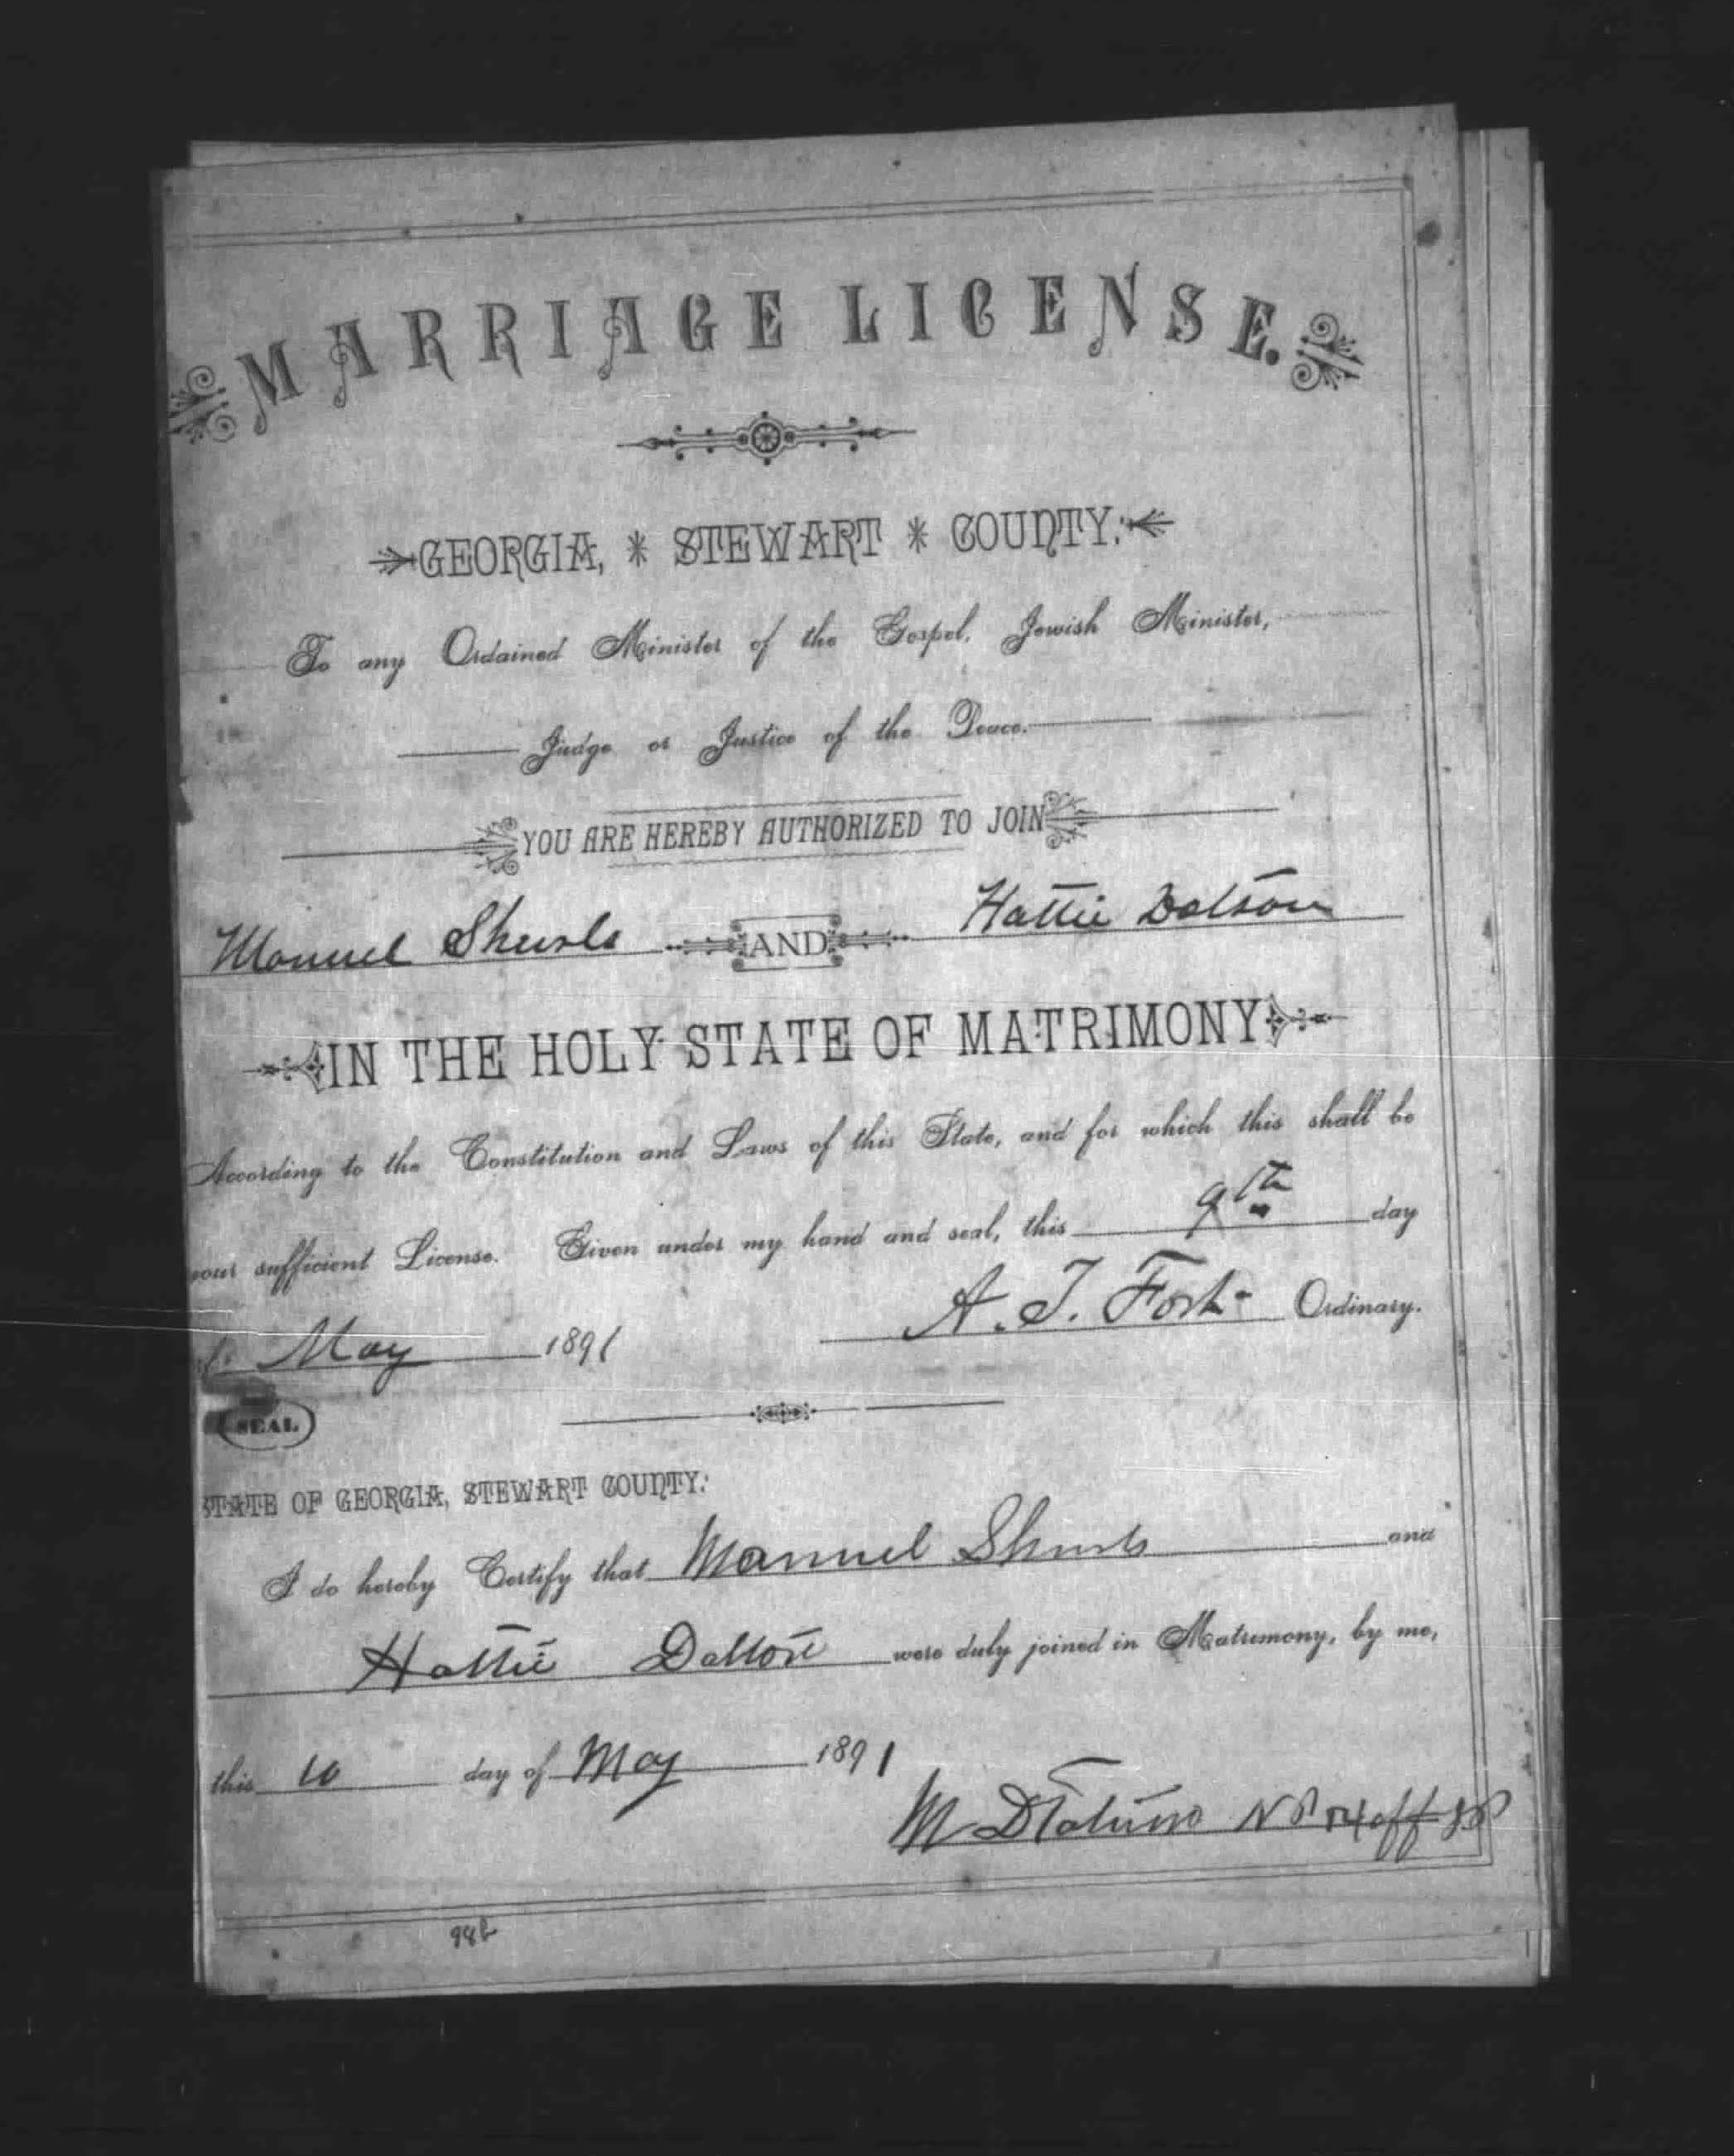 MARRIAGE LICENSE.
GEORGIA, * STEWART * COUNTY:
To any Ordained Minister of the Gospel, Jewish Minister,
Judge or Justice of the Peace.
YOU ARE HEREBY AUTHORIZED TO JOIN
Manuel Sheurls AND Hattie Dolson
IN THE HOLY STATE OF MATRIMONY
According to the Constitution and Laws of this State, and for which this shall be
your sufficient License. Given under my hand and seal, this 9th day
of May 1891 A. T. Fort Ordinary.
SEAL
STATE OF GEORGIA, STEWART COUNTY:
I do hereby Certify that Manuel Shurls and
Hattie Dolton were duly joined in Matrimony, by me,
this 10 day of May 1891
M D Tatum N P
98b